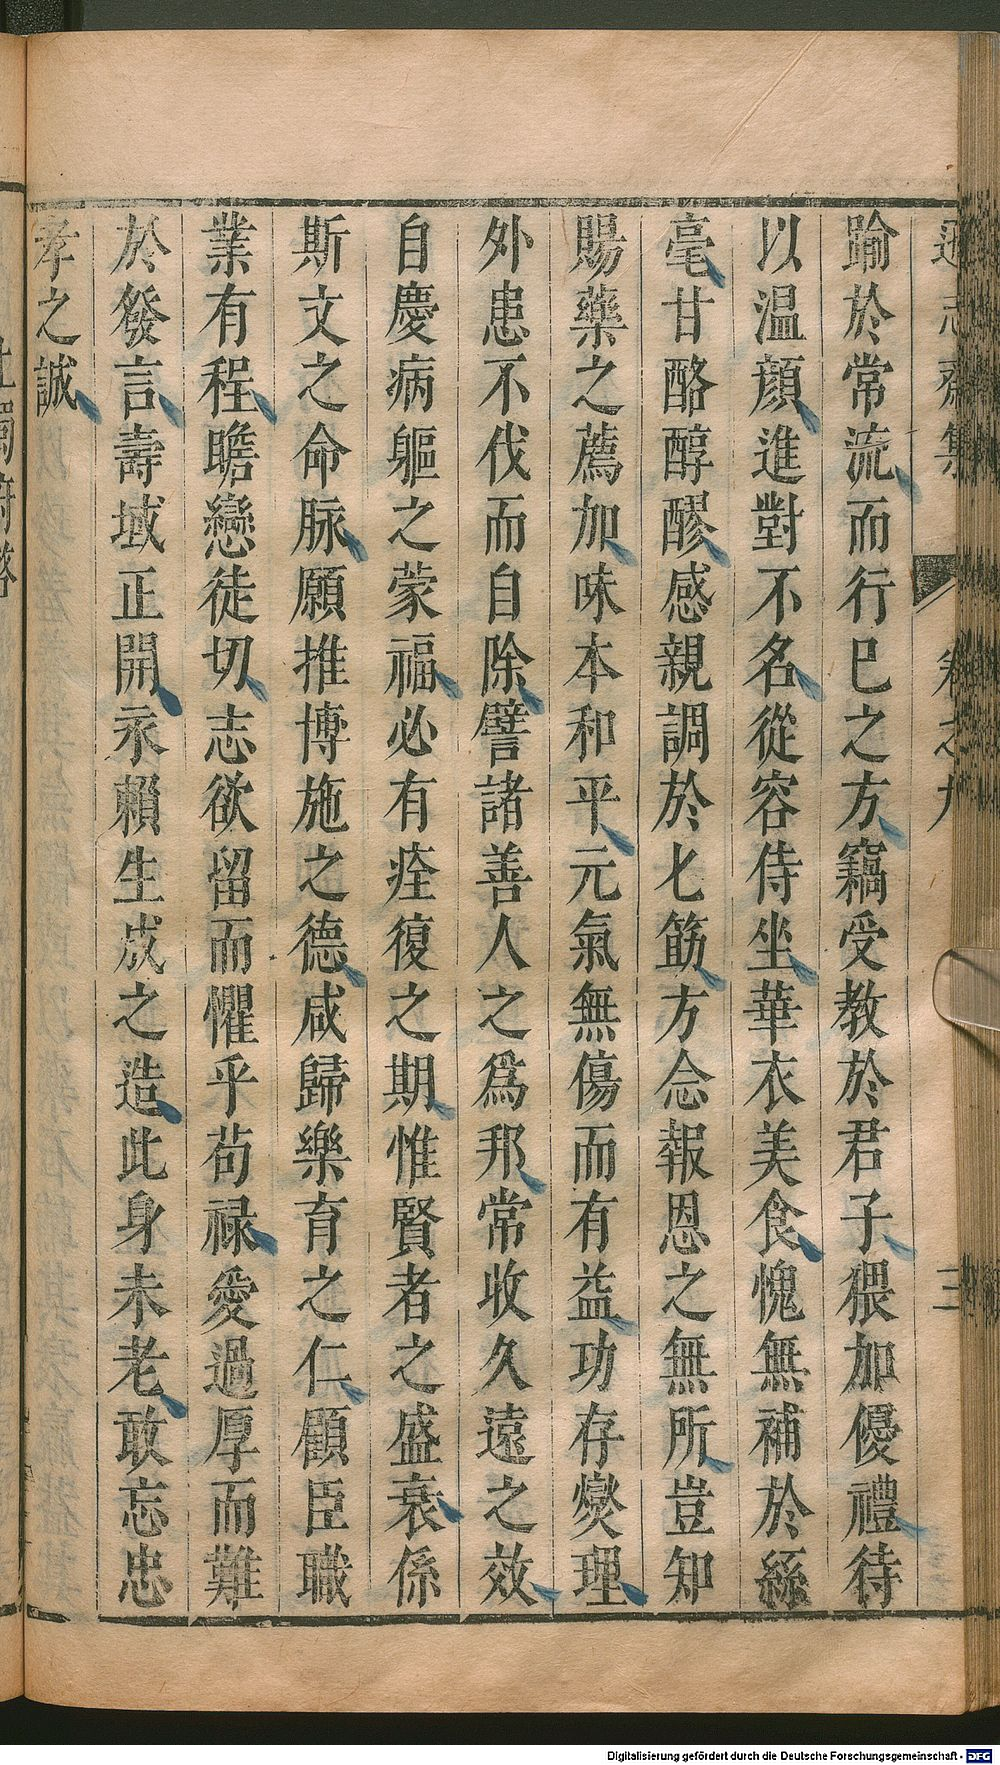 遜志齋集 卷之九 三
踰於常流而行巳之方竊受教於君子猥加優禮待
以温顔進對不名從容侍坐華衣美食愧無補於絲
毫甘酪醇醪感親調於匕筯方念報恩之無所豈知
賜藥之薦加味本和平元氣無傷而有益功存爕理
外患不伐而自除譬諸善人之爲邦常收久遠之效
自慶病軀之蒙福必有痊復之期惟賢者之盛衰係
斯文之命脉願推博施之德咸歸樂育之仁顧臣職
業有程瞻戀徒切志欲留而懼乎苟禄愛過厚而難
於發言壽域正開永賴生成之造此身未老敢忘忠
孝之誠
Digitalisierung gefördert durch die Deutsche Forschungsgemeinschaft - DFG